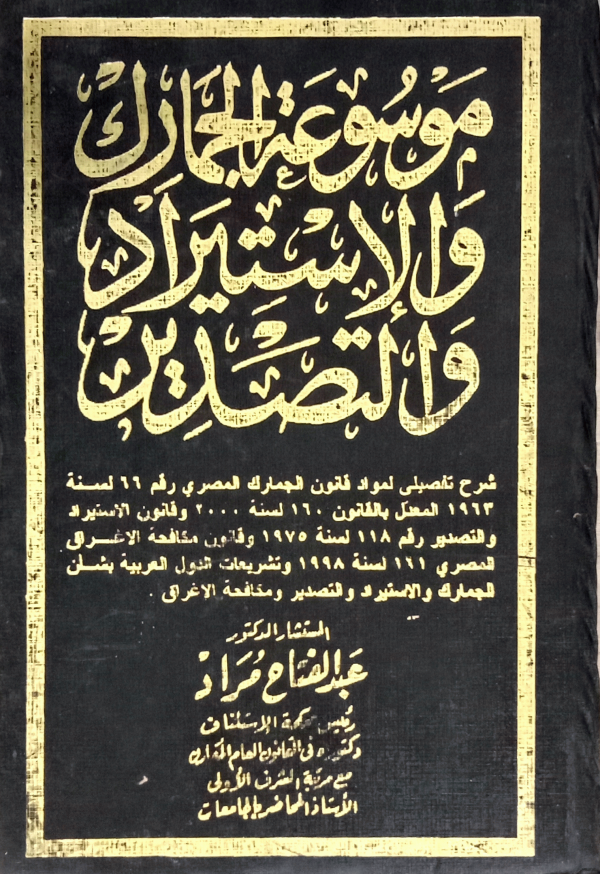 موسوعة الجمارك
والإستيراد
والتصدير
شرح تفصيلى لمواد قانون الجمارك المصري رقم ٦٦ لسنة
١٩٦٣ المعدل بالقانون ١٦٠ لسنة ٢٠٠٠ وقانون الاستيراد
والتصدير رقم ١١٨ لسنة ١٩٧٥ وقانون مكافحة الاغراق
المصري ١٦١ لسنة ١٩٩٨ وتشريعات الدول العربية بشان
الجمارك والاستيراد والتصدير ومكافحة الاغراق .
المستشار الدكتور
عبد الفتاح مراد
رئيس محكمة الإستئناف
دكتوراه فى القانون العام المقارن
مع مرتبة الشرف الأولى
الأستاذ المحاضر بالجامعات